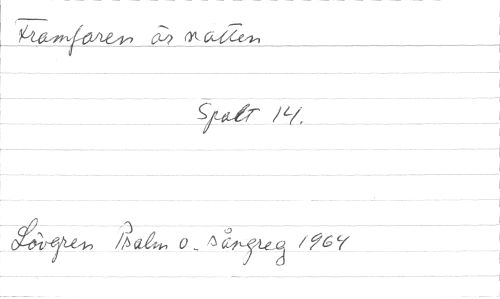 Framfaren är natten
Spalt 14.
Lövgren Psalm o. sångreg 1964